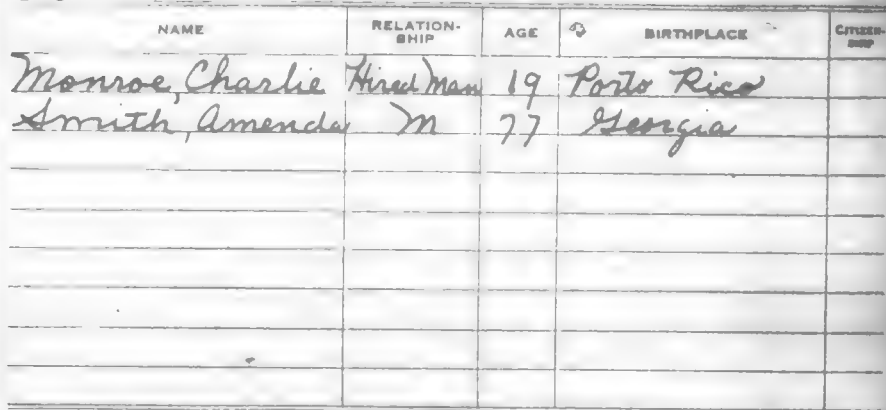 NAME RELATION-SHIP AGE BIRTHPLACE CITIZEN-SHIP
Monroe, Charlie Hired Man 19 Porto Rico
Smith, Amenda M 77 Georgia